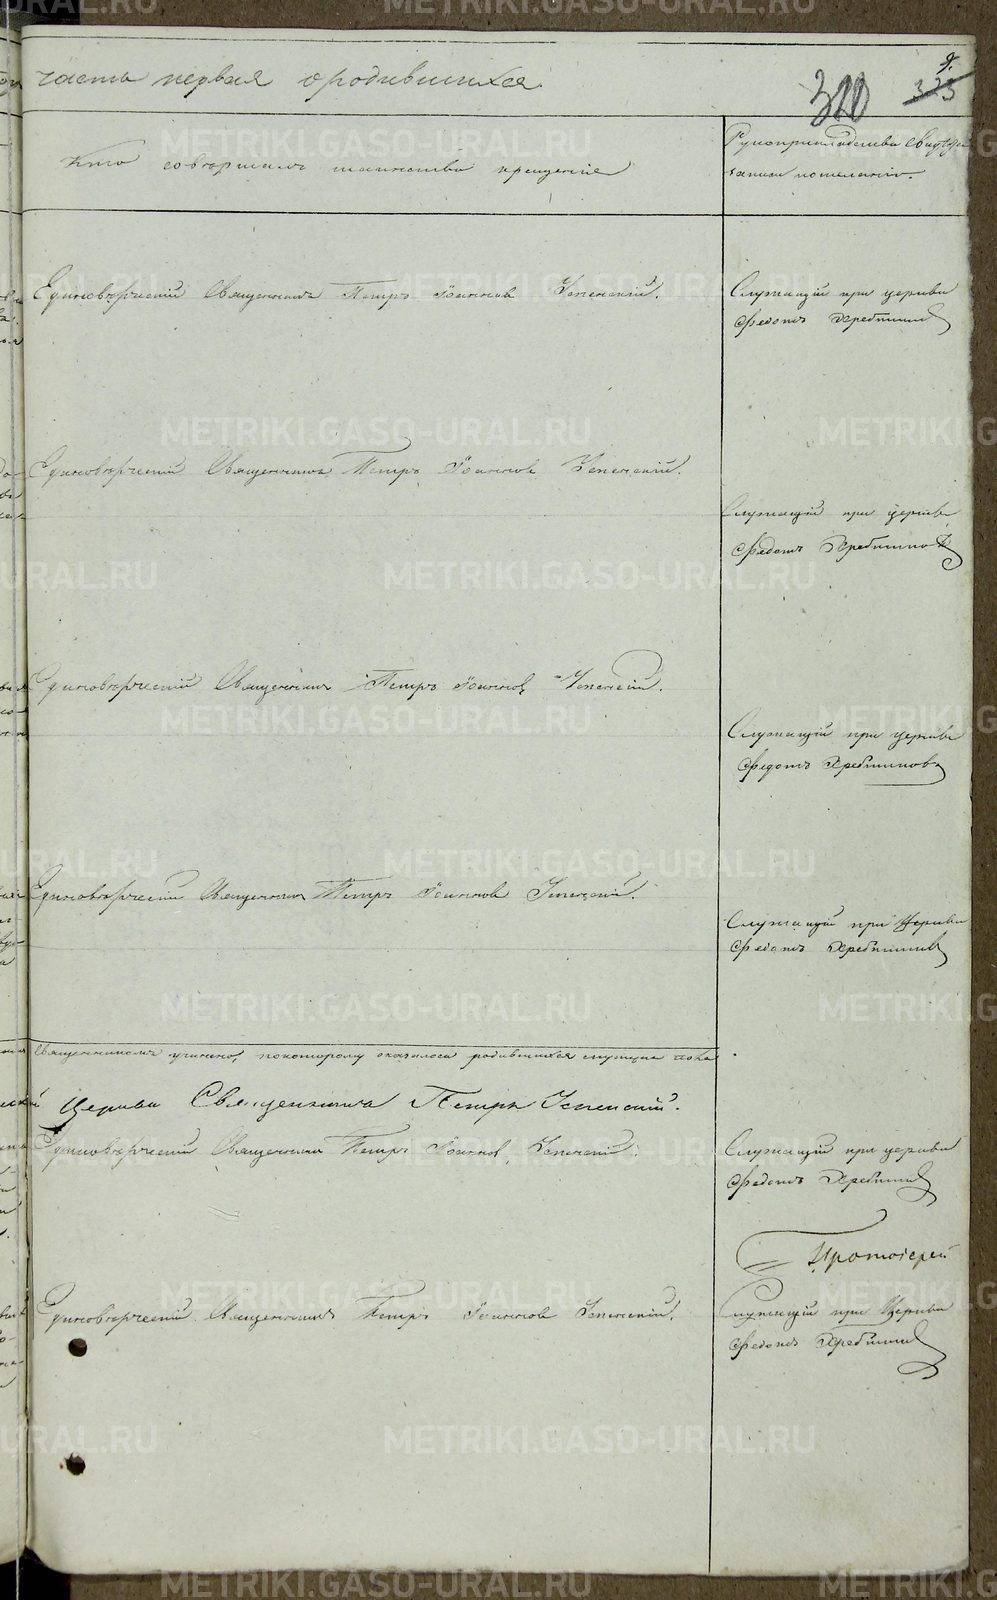 часть первая о родившихся
9.
325
320
Кто совершалъ таинство крещение
Рукоприкладство свидѣте
записи по желанію.
Единовѣрческій Священникъ Петръ Іоанновъ Успенскій.
Служащій при церкви
Федотъ Хребтиковъ
Единовѣрческій Священникъ Петръ Іоанновъ Успенскій.
Служащій при церкви
Федотъ Хребтиковъ
Единовѣрческій Священникъ Петръ Іоанновъ Успенскій.
Служащій при церкви
Федотъ Хребтиковъ
Единовѣрческій Священникъ Петръ Іоанновъ Успенскій.
Служащій при Церкви
Федотъ Хребтиковъ
Священникомъ учинено, по которому оказалось родившихся
Церкви Священникъ Петръ Успенскій.
Единовѣрческій Священникъ Петръ Іоанновъ Успенскій.
Служащій при церкви
Федотъ Хребтиковъ
Протоіерей
Единовѣрческій Священникъ Петръ Іоанновъ Успенскій.
Служащій при Церкви
Федотъ Хребтиковъ
METRIKI.GASO-URAL.RU